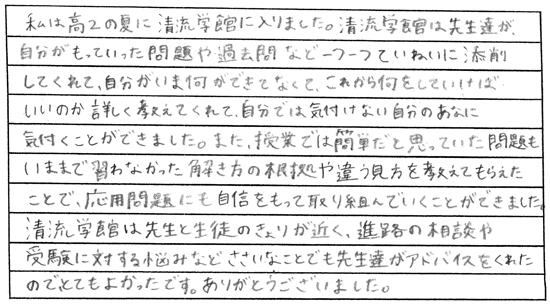 私は高2の夏に清流学館に入りました。清流学館は先生達が、
自分がもっていった問題や過去問など一つ一つていねいに添削
してくれて、自分がいま何ができてなくて、これから何をしていけば
いいのか詳しく教えてくれて、自分では気付けない自分のあなに
気付くことができました。また、授業では簡単だと思っていた問題も
いままで習わなかった解き方の根拠や違う見方を教えてもらえた
ことで、応用問題にも自信をもって取り組んでいくことができました。
清流学館は先生と生徒のきょりが近く、進路の相談や
受験に対する悩みなどささいなことでも先生達がアドバイスをくれた
のでとてもよかったです。ありがとうございました。